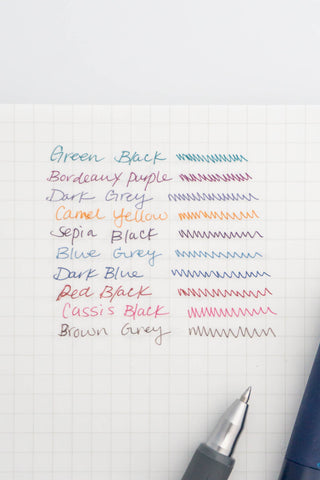 Green Black
Bordeaux purple
Dark Grey
Camel Yellow
Sepia Black
Blue Grey
Dark Blue
Red Black
Cassis Black
Brown Grey